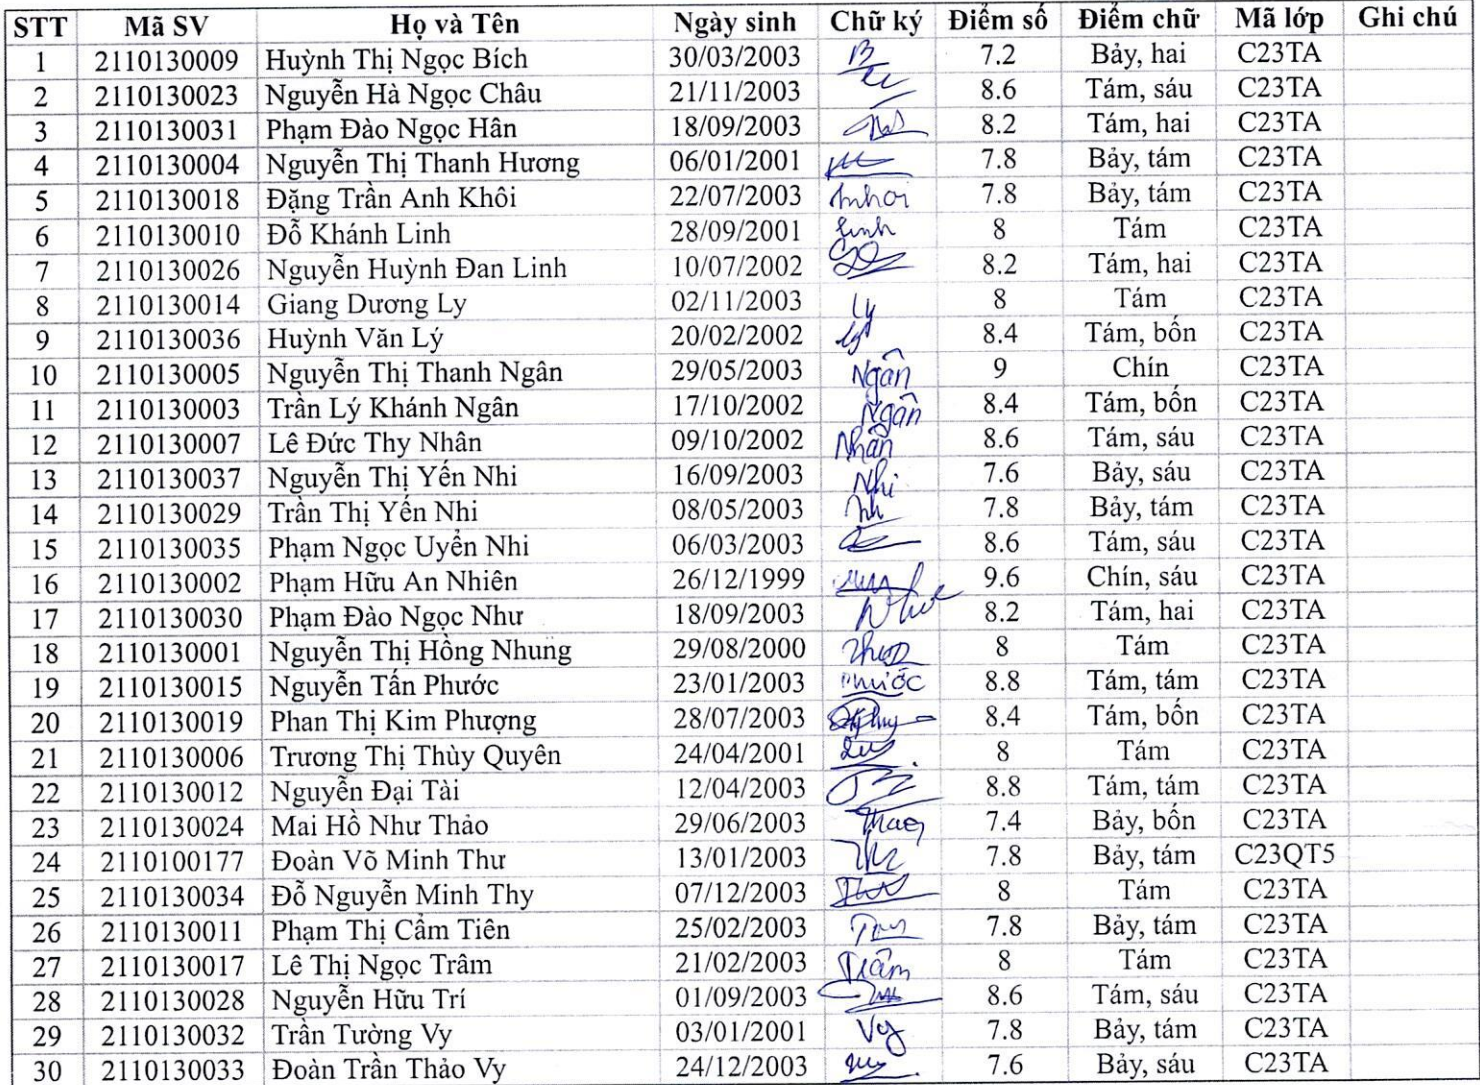 STT Mã SV Họ và Tên Ngày sinh Chữ ký Điểm số Điểm chữ Mã lớp Ghi chú
1 2110130009 Huỳnh Thị Ngọc Bích 30/03/2003 7.2 Bảy, hai C23TA
2 2110130023 Nguyễn Hà Ngọc Châu 21/11/2003 8.6 Tám, sáu C23TA
3 2110130031 Phạm Đào Ngọc Hân 18/09/2003 8.2 Tám, hai C23TA
4 2110130004 Nguyễn Thị Thanh Hương 06/01/2001 7.8 Bảy, tám C23TA
5 2110130018 Đặng Trần Anh Khôi 22/07/2003 7.8 Bảy, tám C23TA
6 2110130010 Đỗ Khánh Linh 28/09/2001 8 Tám C23TA
7 2110130026 Nguyễn Huỳnh Đan Linh 10/07/2002 8.2 Tám, hai C23TA
8 2110130014 Giang Dương Ly 02/11/2003 Ly 8 Tám C23TA
9 2110130036 Huỳnh Văn Lý 20/02/2002 8.4 Tám, bốn C23TA
10 2110130005 Nguyễn Thị Thanh Ngân 29/05/2003 Ngân 9 Chín C23TA
11 2110130003 Trần Lý Khánh Ngân 17/10/2002 Ngân 8.4 Tám, bốn C23TA
12 2110130007 Lê Đức Thy Nhân 09/10/2002 Nhân 8.6 Tám, sáu C23TA
13 2110130037 Nguyễn Thị Yến Nhi 16/09/2003 Nhi 7.6 Bảy, sáu C23TA
14 2110130029 Trần Thị Yến Nhi 08/05/2003 7.8 Bảy, tám C23TA
15 2110130035 Phạm Ngọc Uyển Nhi 06/03/2003 8.6 Tám, sáu C23TA
16 2110130002 Phạm Hữu An Nhiên 26/12/1999 9.6 Chín, sáu C23TA
17 2110130030 Phạm Đào Ngọc Như 18/09/2003 Như 8.2 Tám, hai C23TA
18 2110130001 Nguyễn Thị Hồng Nhung 29/08/2000 8 Tám C23TA
19 2110130015 Nguyễn Tấn Phước 23/01/2003 Phước 8.8 Tám, tám C23TA
20 2110130019 Phan Thị Kim Phượng 28/07/2003 8.4 Tám, bốn C23TA
21 2110130006 Trương Thị Thùy Quyên 24/04/2001 8 Tám C23TA
22 2110130012 Nguyễn Đại Tài 12/04/2003 8.8 Tám, tám C23TA
23 2110130024 Mai Hồ Như Thảo 29/06/2003 7.4 Bảy, bốn C23TA
24 2110100177 Đoàn Võ Minh Thư 13/01/2003 7.8 Bảy, tám C23QT5
25 2110130034 Đỗ Nguyễn Minh Thy 07/12/2003 8 Tám C23TA
26 2110130011 Phạm Thị Cẩm Tiên 25/02/2003 7.8 Bảy, tám C23TA
27 2110130017 Lê Thị Ngọc Trâm 21/02/2003 Trâm 8 Tám C23TA
28 2110130028 Nguyễn Hữu Trí 01/09/2003 8.6 Tám, sáu C23TA
29 2110130032 Trần Tường Vy 03/01/2001 Vy 7.8 Bảy, tám C23TA
30 2110130033 Đoàn Trần Thảo Vy 24/12/2003 7.6 Bảy, sáu C23TA